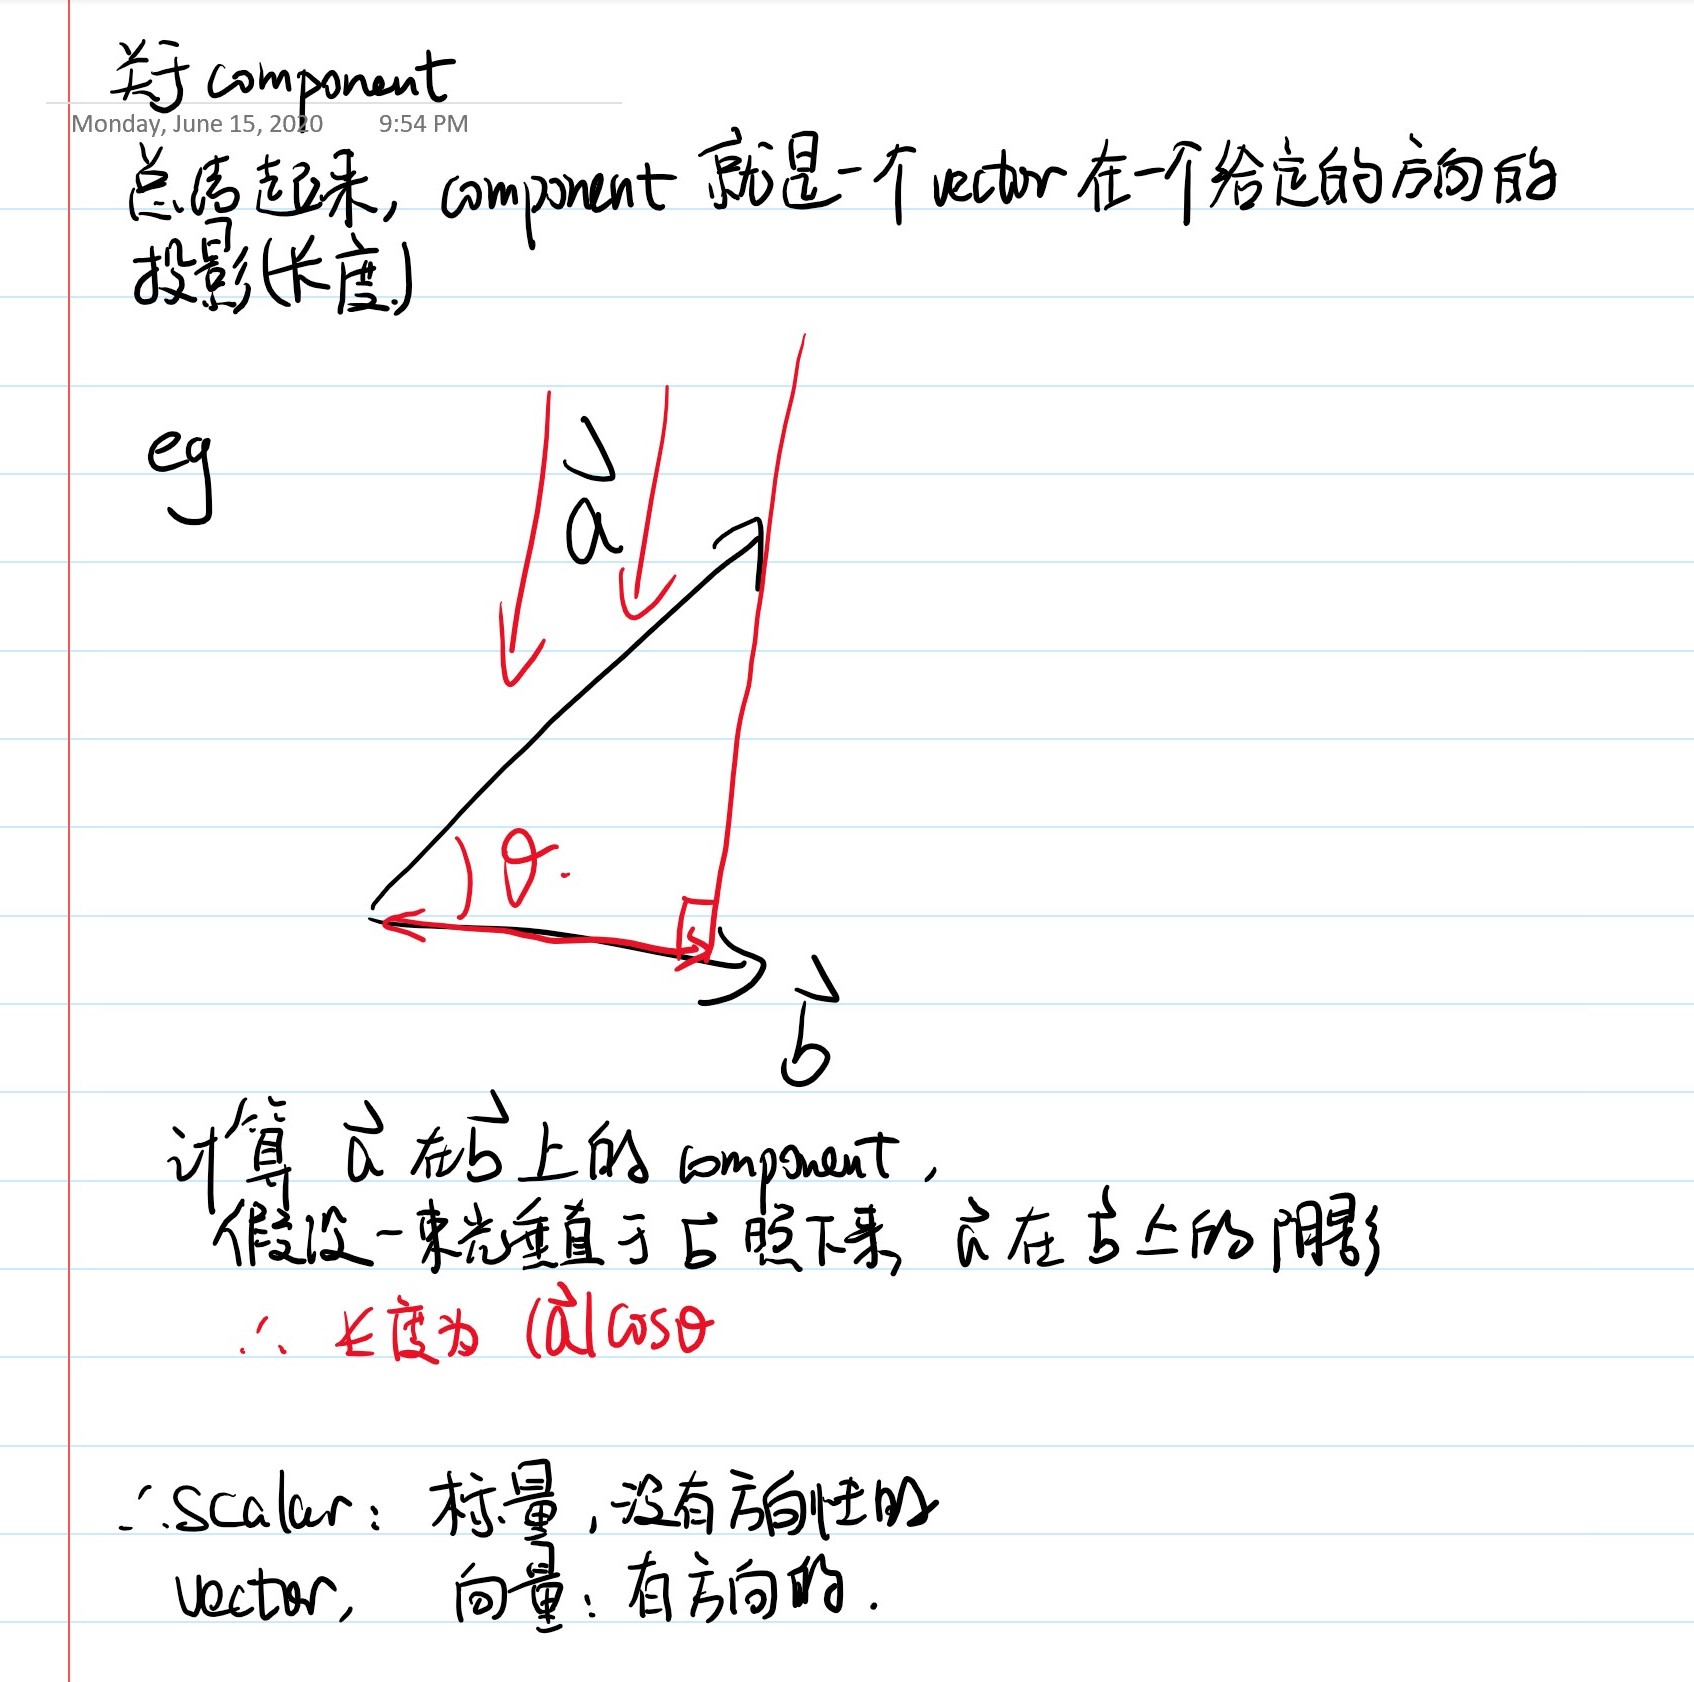 关于component
Monday, June 15, 2020 9:54 PM
总结起来, component 就是一个vector在一个给定的方向的
投影(长度)
eg
a
θ.
b
计算 a⃗ 在b⃗上的 component,
假设一束光垂直于 b 照下来, a⃗ 在 b⃗ 上的 阴影
∴ 长度为 |a⃗|cosθ
∴scalar: 标量,没有方向性的
vector, 向量: 有方向的.